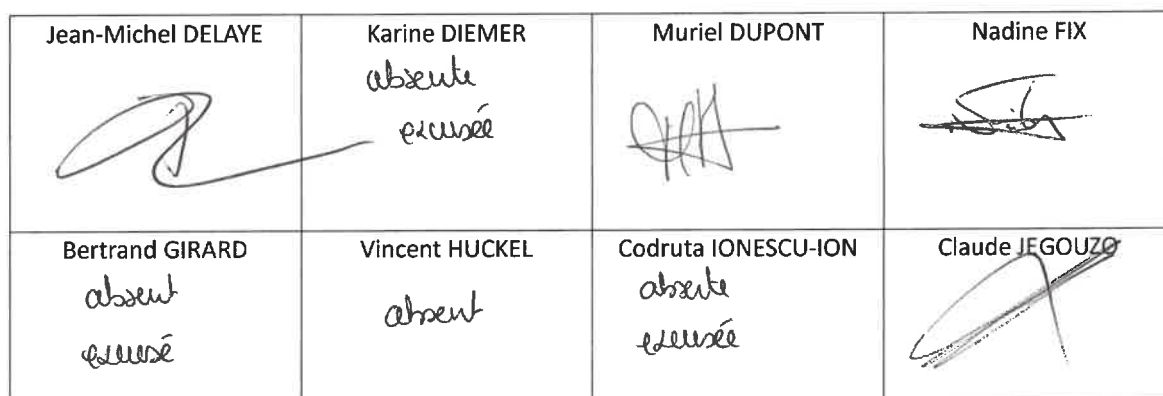 Jean-Michel DELAYE
Karine DIEMER
absente
excusée
Muriel DUPONT
Nadine FIX
Bertrand GIRARD
absent
excusé
Vincent HUCKEL
absent
Codruta IONESCU-ION
absente
excusée
Claude JEGOUZO